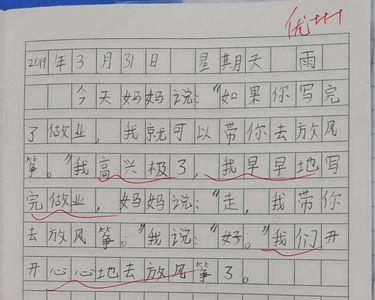 优+++
2019年3月31日 星期天 雨
今天妈妈说:“如果你写完
了做业,我就可以带你去放风
筝。”我高兴极了,我早早地写
完做业,妈妈说:“走,我带你
去放风筝。”我说:“好。”我们开
开心心地去放风筝了。